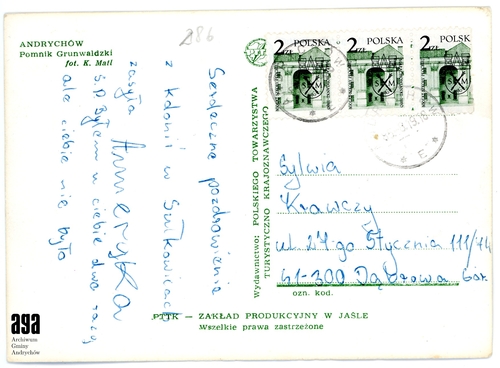 ANDRYCHÓW
Pomnik Grunwaldzki
fot. K. Mati
286
Serdeczne pozdrowienia
z kolonii w Sułkowicach
zasyła Ameryka
S.P. Byłem u ciebie dwa razy
ale ciebie nie było
Wydawnictwo: POLSKIEGO TOWARZYSTWA
TURYSTYCZNO KRAJOZNAWCZEGO
2 ZŁ POLSKA
2 ZŁ POLSKA
2 ZŁ POLSKA
Sylwia
Krawczy
ul 27-go Stycznia 111/74
41-300 Dąbrowa Gór.
ozn. kod.
PTTK — ZAKŁAD PRODUKCYJNY W JAŚLE
Wszelkie prawa zastrzeżone
aga
Archiwum
Gminy
Andrychów